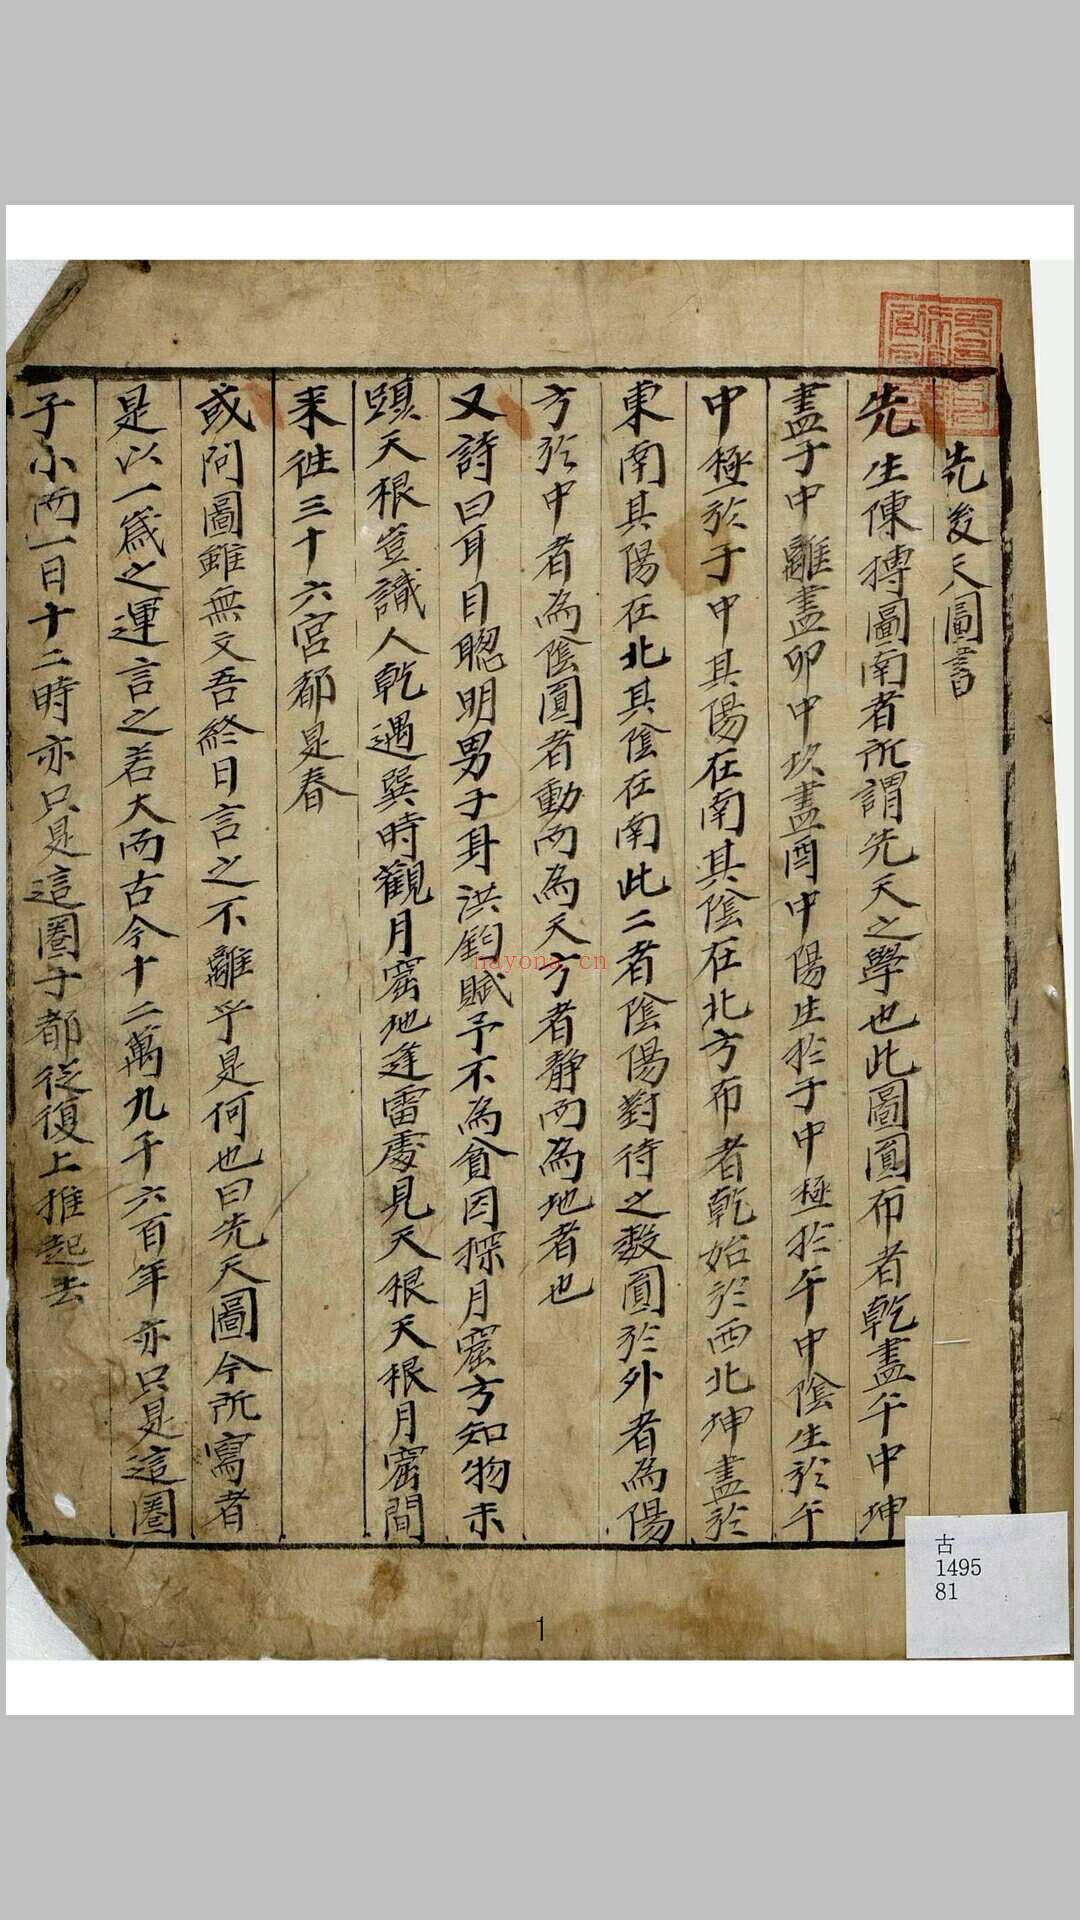 先後天圖書
先生陳摶圖南者所謂先天之學也此圖圓布者乾盡午中坤
盡子中離盡卯中坎盡酉中陽生於子中極於午中陰生於午
中極於子中其陽在南其陰在北方布者乾始於西北坤盡於
東南其陽在北其陰在南此二者陰陽對待之數圓於外者為陽
方於中者為陰圓者動而為天方者靜而為地者也
又詩曰耳目聰明男子身洪鈞賦予不為貧因探月窟方知物未
躡天根豈識人乾遇巽時觀月窟地逢雷處見天根天根月窟間
来往三十六宮都是春
或問圖雖無文吾終日言之不離乎是何也曰先天圖今所寫者
是以一歲之運言之若大而古今十二萬九千六百年亦只是這圈
子小而一日十二時亦只是這圈子都從復上推起去
hayona.cn
古
1495
81
1